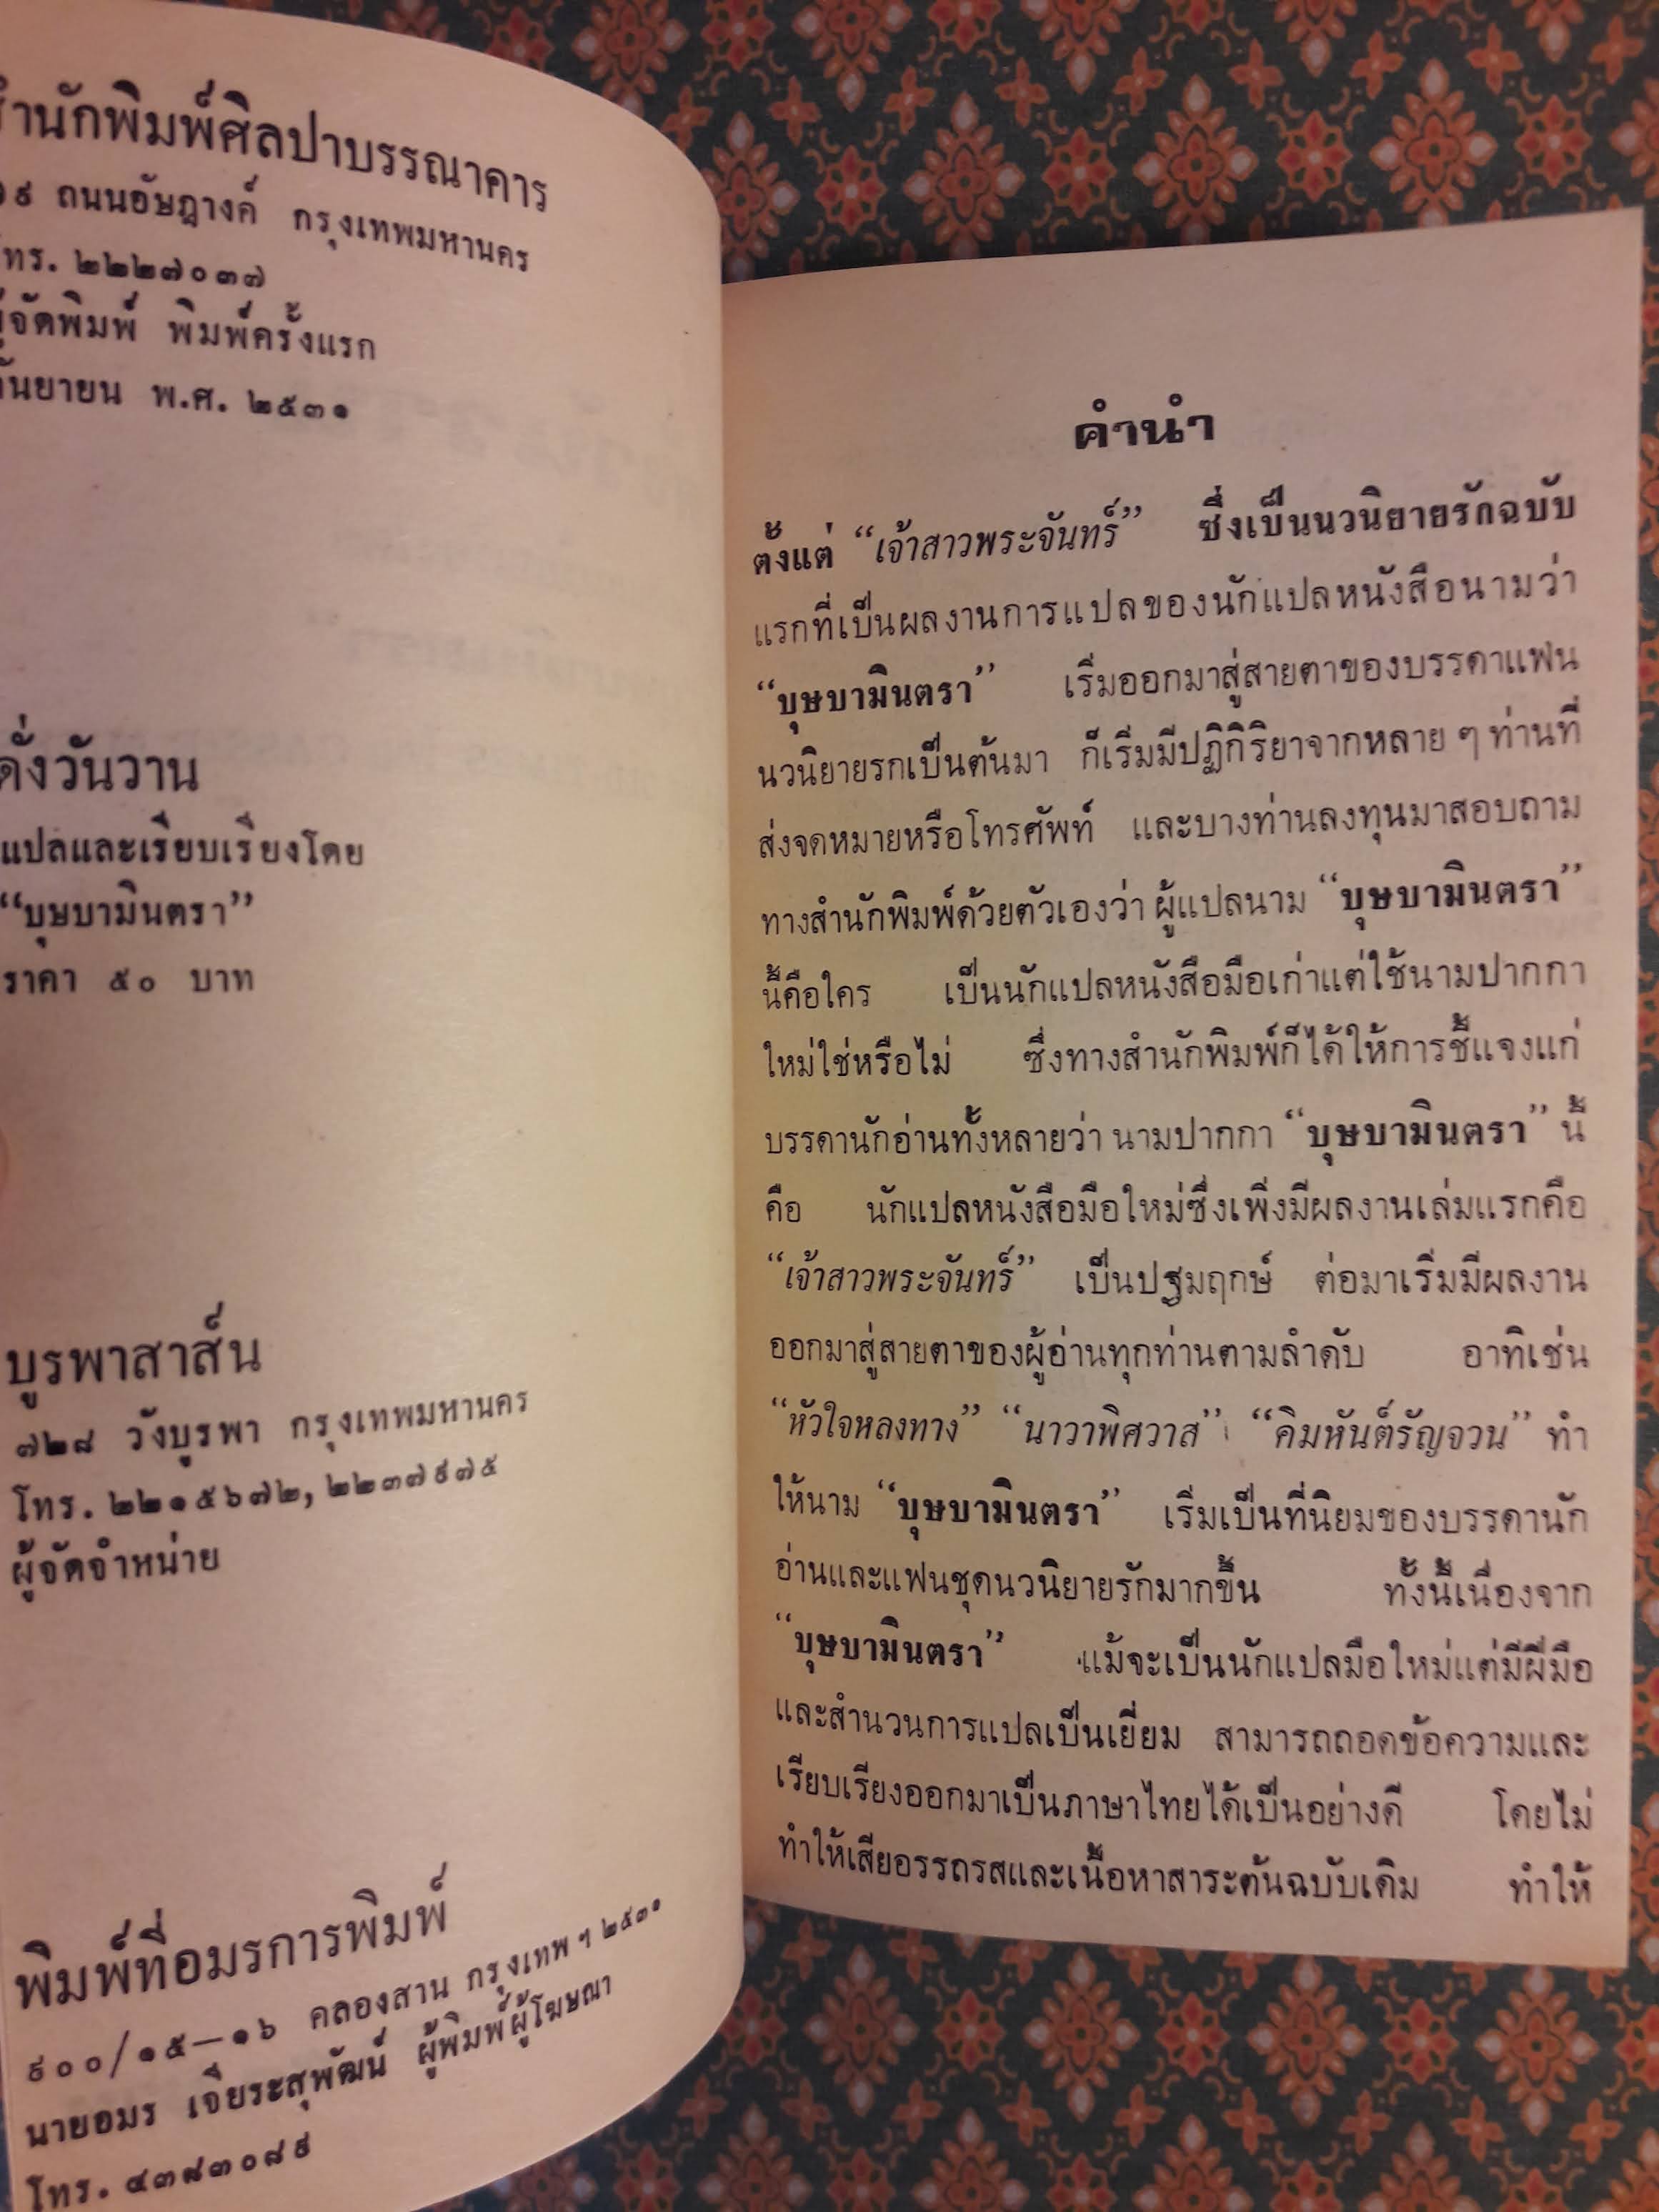 สำนักพิมพ์ศิลปาบรรณาคาร
ถนนอัษฎางค์ กรุงเทพมหานคร
โทร. ๒๒๒๗๐๓๗
ผู้จัดพิมพ์ พิมพ์ครั้งแรก
กันยายน พ.ศ. ๒๕๓๑
ดั่งวันวาน
แปลและเรียบเรียงโดย
“บุษบามินตรา”
ราคา ๕๐ บาท
บูรพาสาส์น
๗๒๘ วังบูรพา กรุงเทพมหานคร
โทร. ๒๒๑๕๖๗๒, ๒๒๓๗๙๗๕
ผู้จัดจำหน่าย
พิมพ์ที่อมรการพิมพ์
๙๐๐/๑๕—๑๖ คลองสาน กรุงเทพ ฯ ๒๕๓๑
นายอมร เจียระสุพัฒน์ ผู้พิมพ์ผู้โฆษณา
โทร. ๔๓๘๓๐๘๙
คำนำ
ตั้งแต่ “เจ้าสาวพระจันทร์” ซึ่งเป็นนวนิยายรักฉบับ
แรกที่เป็นผลงานการแปลของนักแปลหนังสือนามว่า
“บุษบามินตรา” เริ่มออกมาสู่สายตาของบรรดาแฟน
นวนิยายรกเป็นต้นมา ก็เริ่มมีปฏิกิริยาจากหลาย ๆ ท่านที่
ส่งจดหมายหรือโทรศัพท์ และบางท่านลงทุนมาสอบถาม
ทางสำนักพิมพ์ด้วยตัวเองว่า ผู้แปลนาม “บุษบามินตรา”
นี้คือใคร เป็นนักแปลหนังสือมือเก่าแต่ใช้นามปากกา
ใหม่ใช่หรือไม่ ซึ่งทางสำนักพิมพ์ก็ได้ให้การชี้แจงแก่
บรรดานักอ่านทั้งหลายว่า นามปากกา “บุษบามินตรา” นี้
คือ นักแปลหนังสือมือใหม่ซึ่งเพิ่งมีผลงานเล่มแรกคือ
“เจ้าสาวพระจันทร์” เป็นปฐมฤกษ์ ต่อมาเริ่มมีผลงาน
ออกมาสู่สายตาของผู้อ่านทุกท่านตามลำดับ อาทิเช่น
“หัวใจหลงทาง” “นาวาพิศวาส” “คิมหันต์รัญจวน” ทำ
ให้นาม “บุษบามินตรา” เริ่มเป็นที่นิยมของบรรดานัก
อ่านและแฟนชุดนวนิยายรักมากขึ้น ทั้งนี้เนื่องจาก
“บุษบามินตรา” แม้จะเป็นนักแปลมือใหม่แต่มีฝีมือ
และสำนวนการแปลเป็นเยี่ยม สามารถถอดข้อความและ
เรียบเรียงออกมาเป็นภาษาไทยได้เป็นอย่างดี โดยไม่
ทำให้เสียอรรถรสและเนื้อหาสาระต้นฉบับเดิม ทำให้